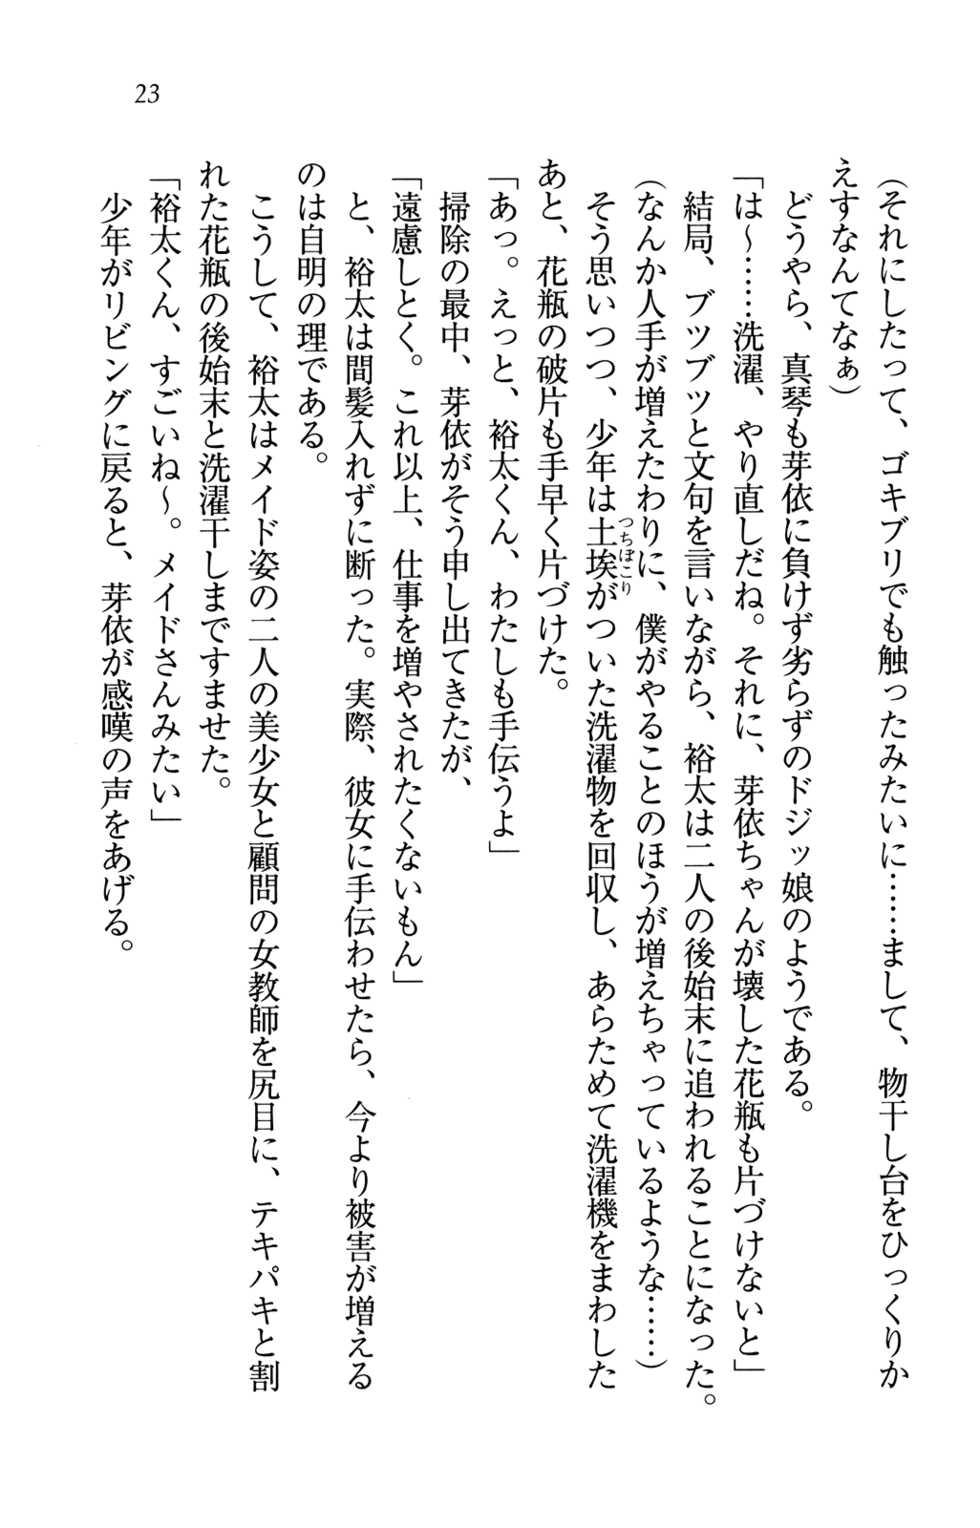 23
（それにしたって、ゴキブリでも触ったみたいに……まして、物干し台をひっくりか
えすなんてなぁ）
どうやら、真琴も芽依に負けず劣らずのドジッ娘のようである。
「は～……洗濯、やり直しだね。それに、芽依ちゃんが壊した花瓶も片づけないと」
結局、ブツブツと文句を言いながら、裕太は二人の後始末に追われることになった。
（なんか人手が増えたわりに、僕がやることのほうが増えちゃっているような……）
そう思いつつ、少年は土埃がついた洗濯物を回収し、あらためて洗濯機をまわした
つちぼこり
あと、花瓶の破片も手早く片づけた。
「あっ。えっと、裕太くん、わたしも手伝うよ」
掃除の最中、芽依がそう申し出てきたが、
「遠慮しとく。これ以上、仕事を増やされたくないもん」
と、裕太は間髪入れずに断った。実際、彼女に手伝わせたら、今より被害が増える
のは自明の理である。
こうして、裕太はメイド姿の二人の美少女と顧問の女教師を尻目に、テキパキと割
れた花瓶の後始末と洗濯干しまですませた。
「裕太くん、すごいね～。メイドさんみたい」
少年がリビングに戻ると、芽依が感嘆の声をあげる。